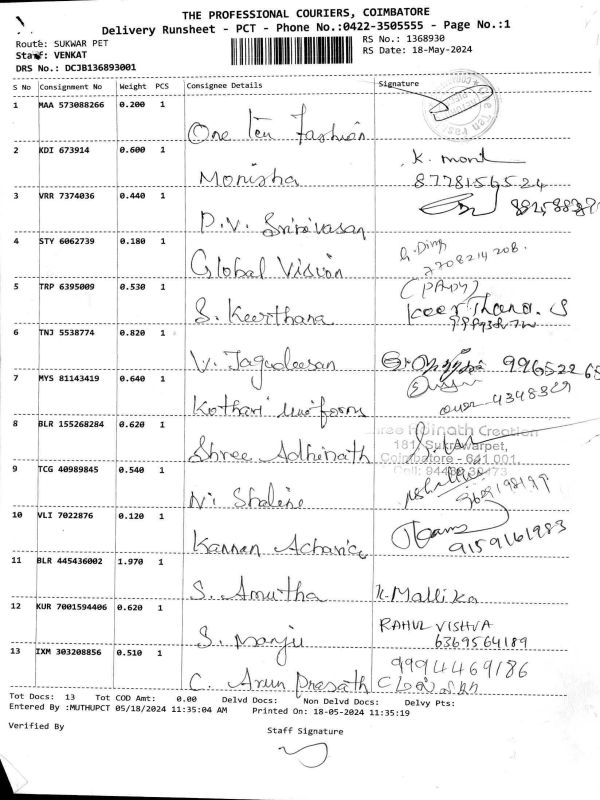 THE PROFESSIONAL COURIERS, COIMBATORE
Delivery Runsheet - PCT - Phone No.:0422-3505555 - Page No.:1
Route: SUKWAR PET
RS No.: 1368930
Staff: VENKAT
RS Date: 18-May-2024
DRS No.: DCJB136893001
S No Consignment No Weight PCS Consignee Details Signature
1 MAA 573088266 0.200 1
One Ten Fashion
2 KDI 673914 0.600 1
Monisha
8778156524
3 VRR 7374036 0.440 1
P.V. Srinivasan
4 STY 6062739 0.180 1
Global Vision
7708214208.
5 TRP 6395009 0.530 1
S. Keerthana Keerthana. S
6 TNJ 5538774 0.820 1
V. Jagadeesan
7 MYS 81143419 0.640 1
Kothari uniforms
8 BLR 155268284 0.620 1
Creation
181, Sukrawarpet,
Shree Adhinath Coimbatore - 641 001.
9 TCG 40989845 0.540 1
10 VLI 7022876 0.120 1
Kannan 9159161983
11 BLR 445436002 1.970 1
S. Amutha K. Mallika
12 KUR 7001594406 0.620 1
RAHUL VISHVA
S. Manju 6369564189
13 IXM 303208856 0.510 1
9994469186
C. Arun Prasath
Tot Docs: 13 Tot COD Amt: 0.00 Delvd Docs: Non Delvd Docs: Delvy Pts:
Entered By :MUTHUPCT 05/18/2024 11:35:04 AM Printed On: 18-05-2024 11:35:19
Verified By
Staff Signature